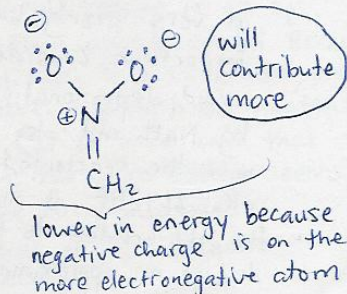 ⊖ ⊖
O O
will
contribute
more
⊕N
CH2
lower in energy because
negative charge is on the
more electronegative atom